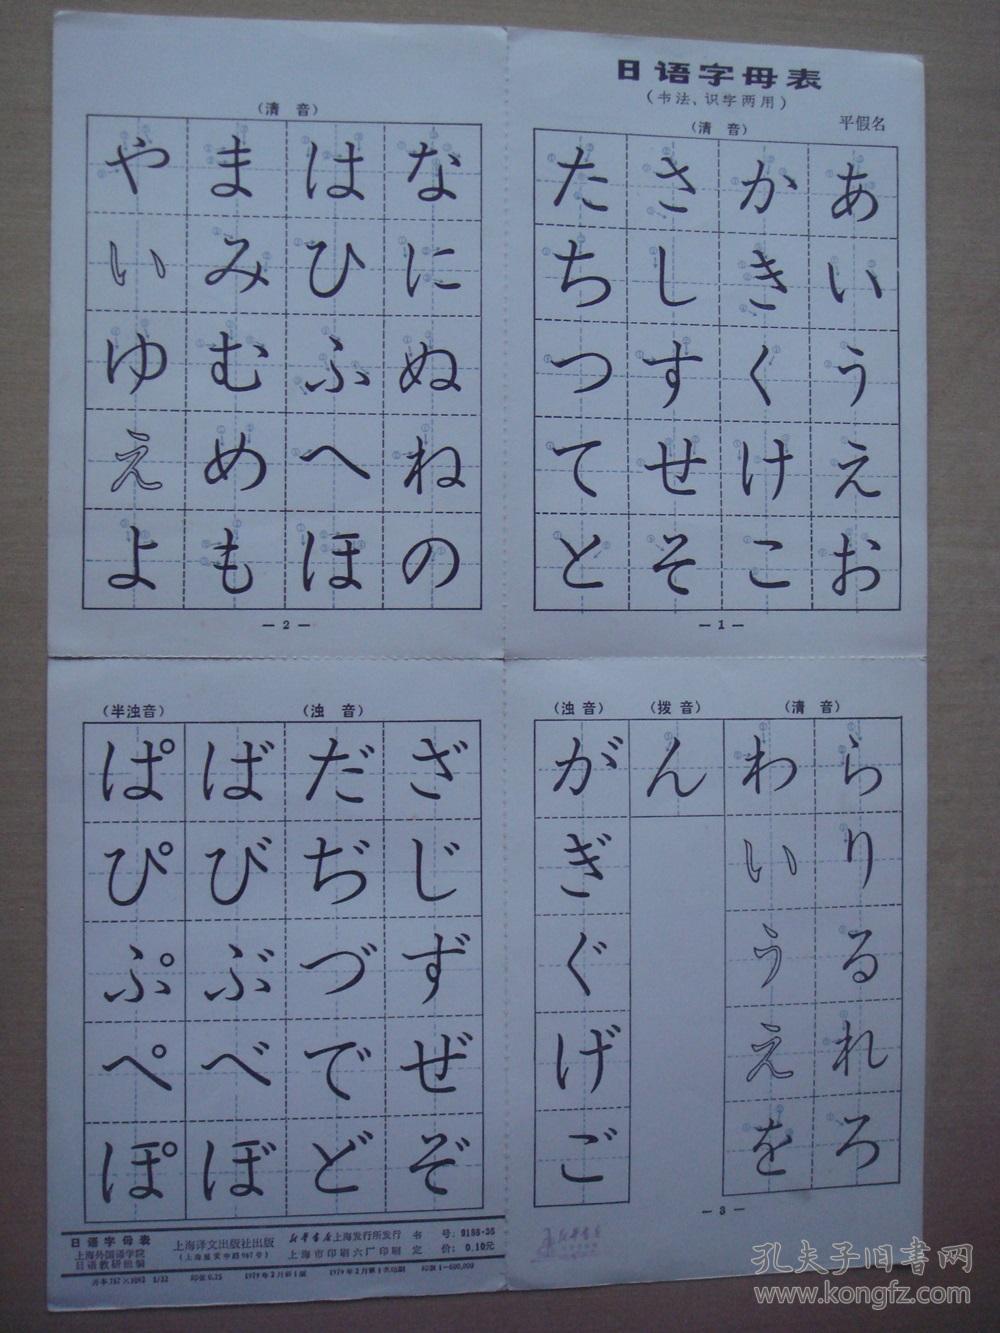 日语字母表
(书法、识字两用)
平假名
(清 音)
た さ か あ
ち し き い
つ す く う
て せ け え
と そ こ お
— 1 —
(清 音)
や ま は な
い み ひ に
ゆ む ふ ぬ
え め へ ね
よ も ほ の
— 2 —
(浊 音) (拨 音) (清 音)
が ん わ ら
ぎ い り
ぐ う る
げ え れ
ご を ろ
— 3 —
(半浊音) (浊 音)
ぱ ば だ ざ
ぴ び ぢ じ
ぷ ぶ づ ず
ぺ べ で ぜ
ぽ ぼ ど ぞ
日语字母表
上海外国语学院
日语教研组编
上海译文出版社出版
(上海延安中路967号)
新华书店上海发行所发行
上海市印刷六厂印刷
书 号: 9188·35
定 价: 0.10元
开本 787×1092 1/32 印张 0.25 1979年2月第1版 1979年2月第1次印刷 印数 1—600,000
孔夫子旧书网
www.kongfz.com